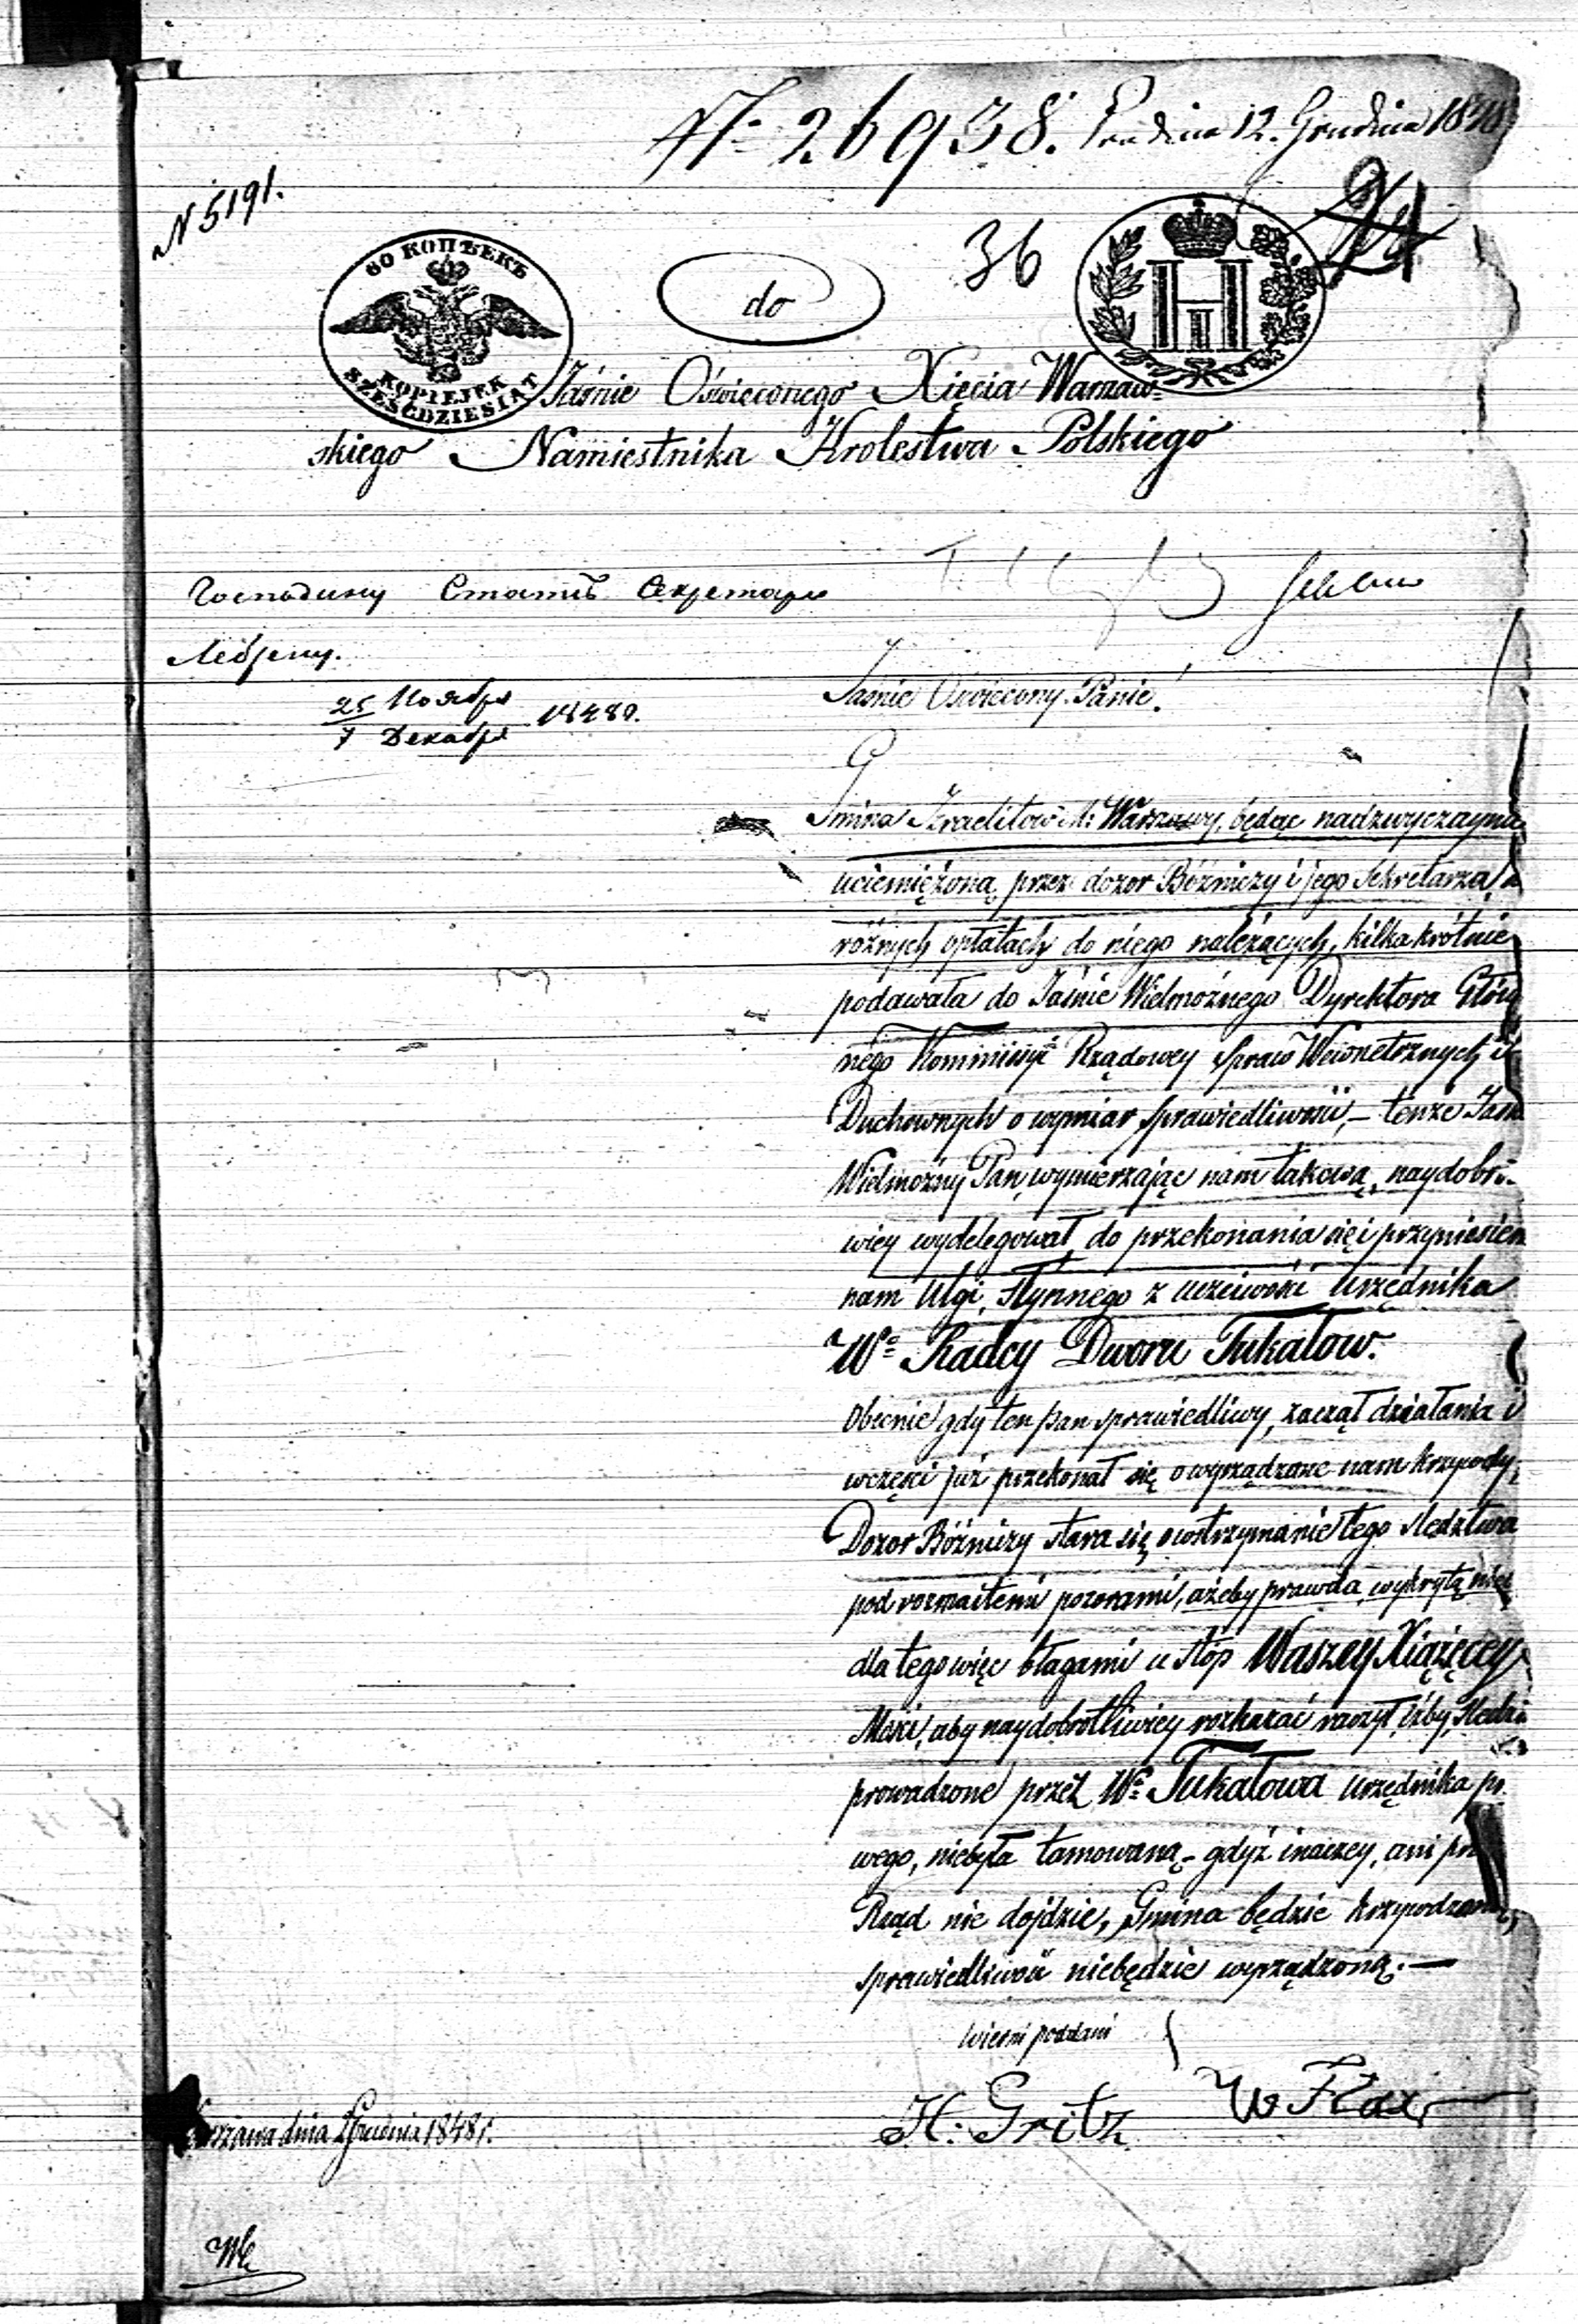 № 26938. 12. Grudnia 1848
N 5191.
36
24
60 КОПѢЕКЪ
KOPIEJEK
SZEŚĆDZIESIĄT
do
Jaśnie Oświeconego Xięcia Warszaw-
skiego Namiestnika Krolestwa Polskiego
Господину Статсъ Секретарю
25 Ноября
7 Декабря 1848.
Jaśnie Oświecony Panie!
Gmina Izraelitow M: Warszawy, będąc nadzwyczayna
uciemiężoną przez dozor Bóżniczy i jego Sekretarza
różnych opłatach do niego należących, kilkakrótnie
podawała do Jaśnie Wielmożnego Dyrektora Głów
nego Kommissyi Rządowey Spraw Wewnetrznych i
Duchownych o wymiar sprawiedliwości, – tenże Jaśn
Wielmożny Pan, wymierzając nam takową, naydobro-
wiey wydelegował, do przekonania się i przyniesien
nam Ulgi, słynnego z uczciwości Urzędnika
Wº Radcy Dworu Tukałow.
Obecnie gdy ten pan sprawiedliwy, zaczął działania i
wczęści już przekonał się o wyrządzone nam krzywdy,
Dozor Bóżniczy stara się o wstrzymanie tego sledztwa
pod rozmaitemi pozorami, ażeby prawda wykrytą nie
dla tego więc błagami u stóp Waszey Xiążęcey
Mości, aby naydobrotliwiey rozkazać raczył, iżby Sledz
prowadzone przez Wº Tukałowa Urzędnika pr.
wego, niebyła tamowaną – gdyż inaczey, ani
Rząd nie dojdzie, Gmina będzie krzywdzoną,
sprawiedliwość niebędzie wyrządzoną. —
wierni poddani
H: Gritz W Flax
dnia 2 Grudnia 1848 r.